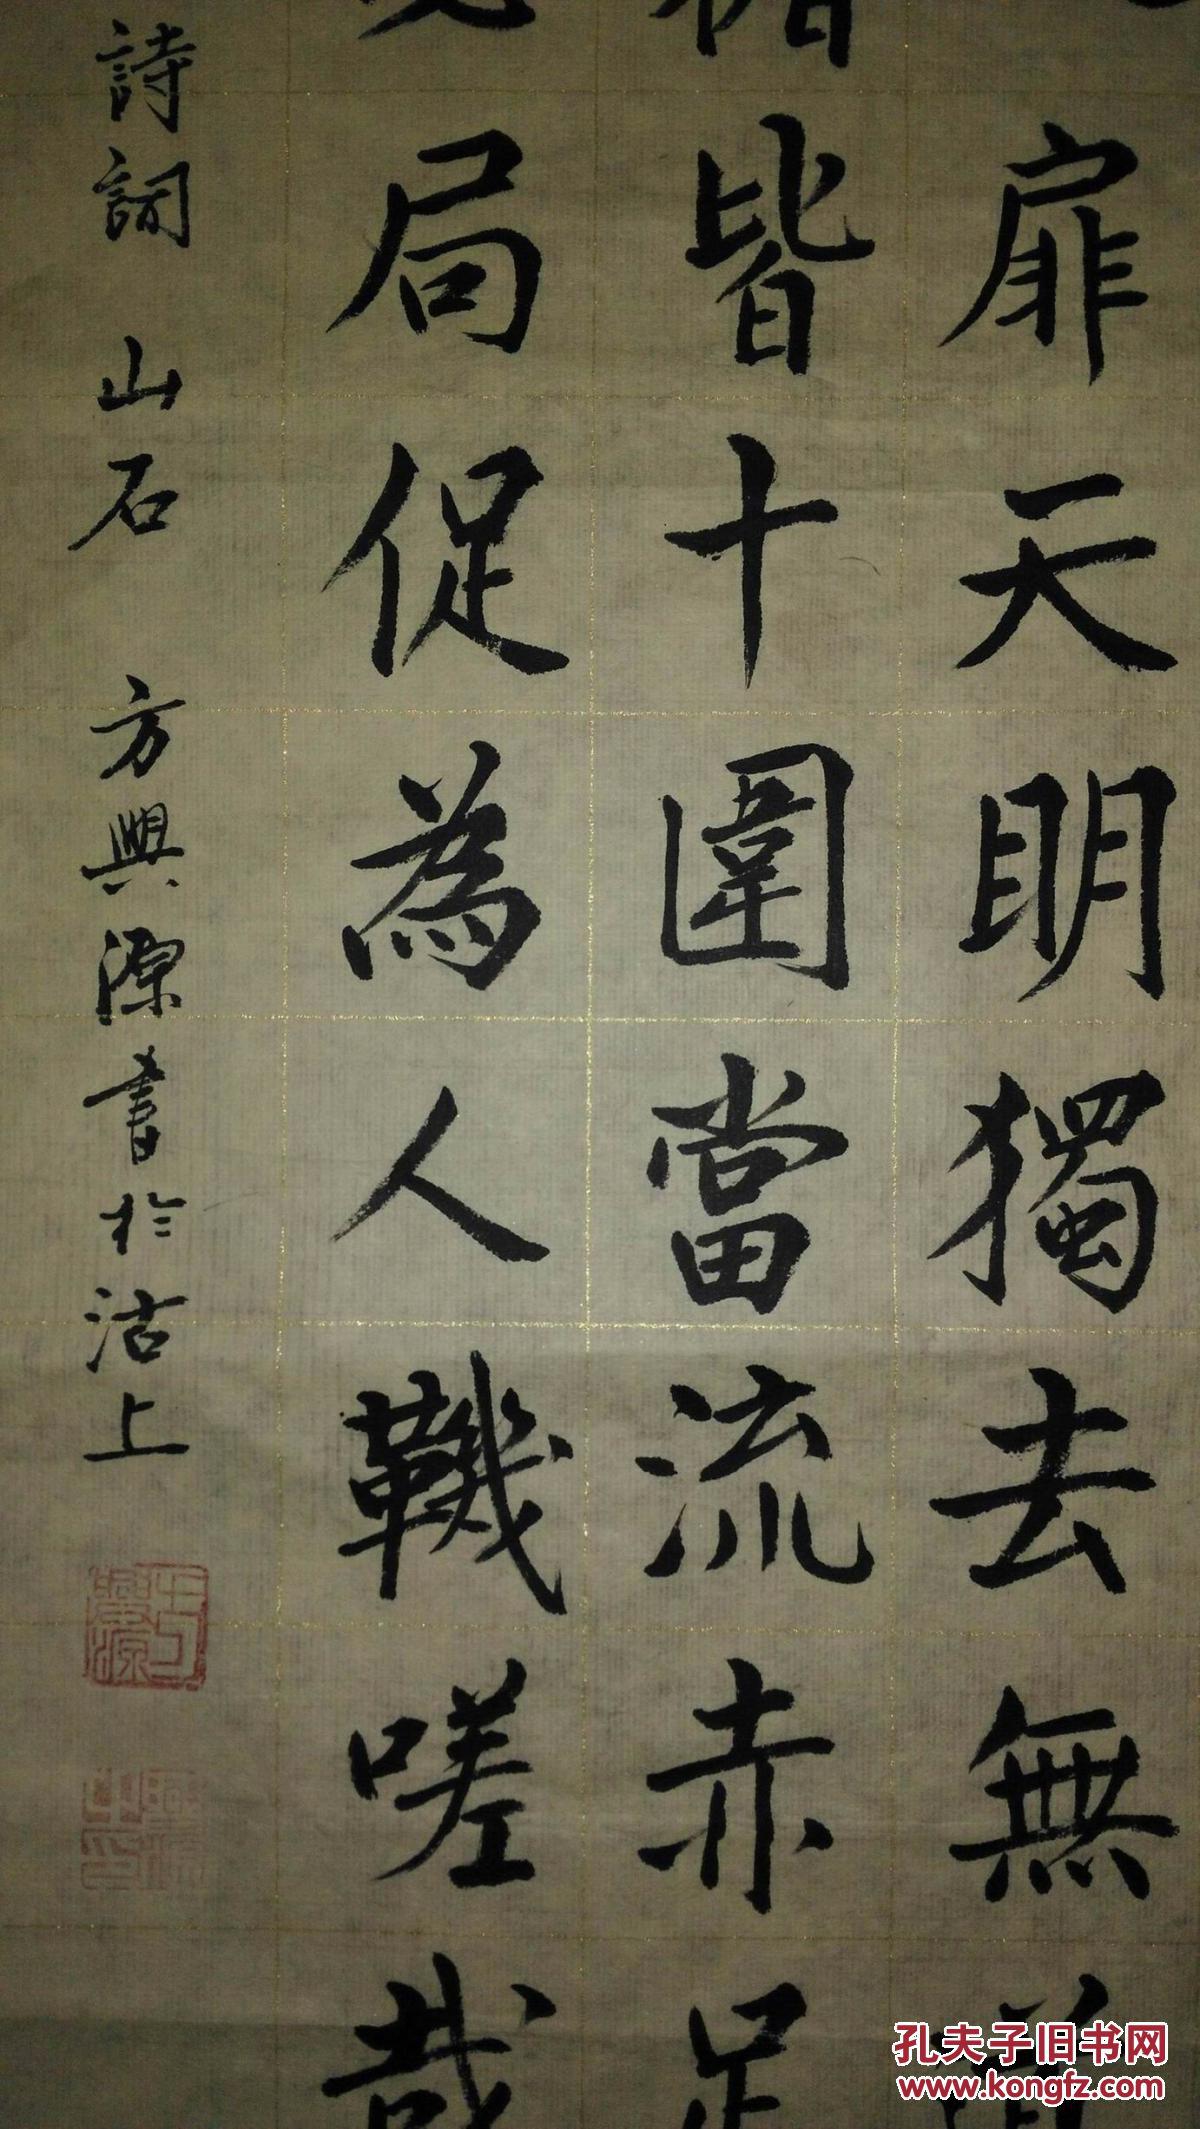 扉天明獨去無道
皆十圍當流赤足
局促為人鞿嗟哉
詩詞 山石 方興源書於沽上
孔夫子旧书网
www.kongfz.com